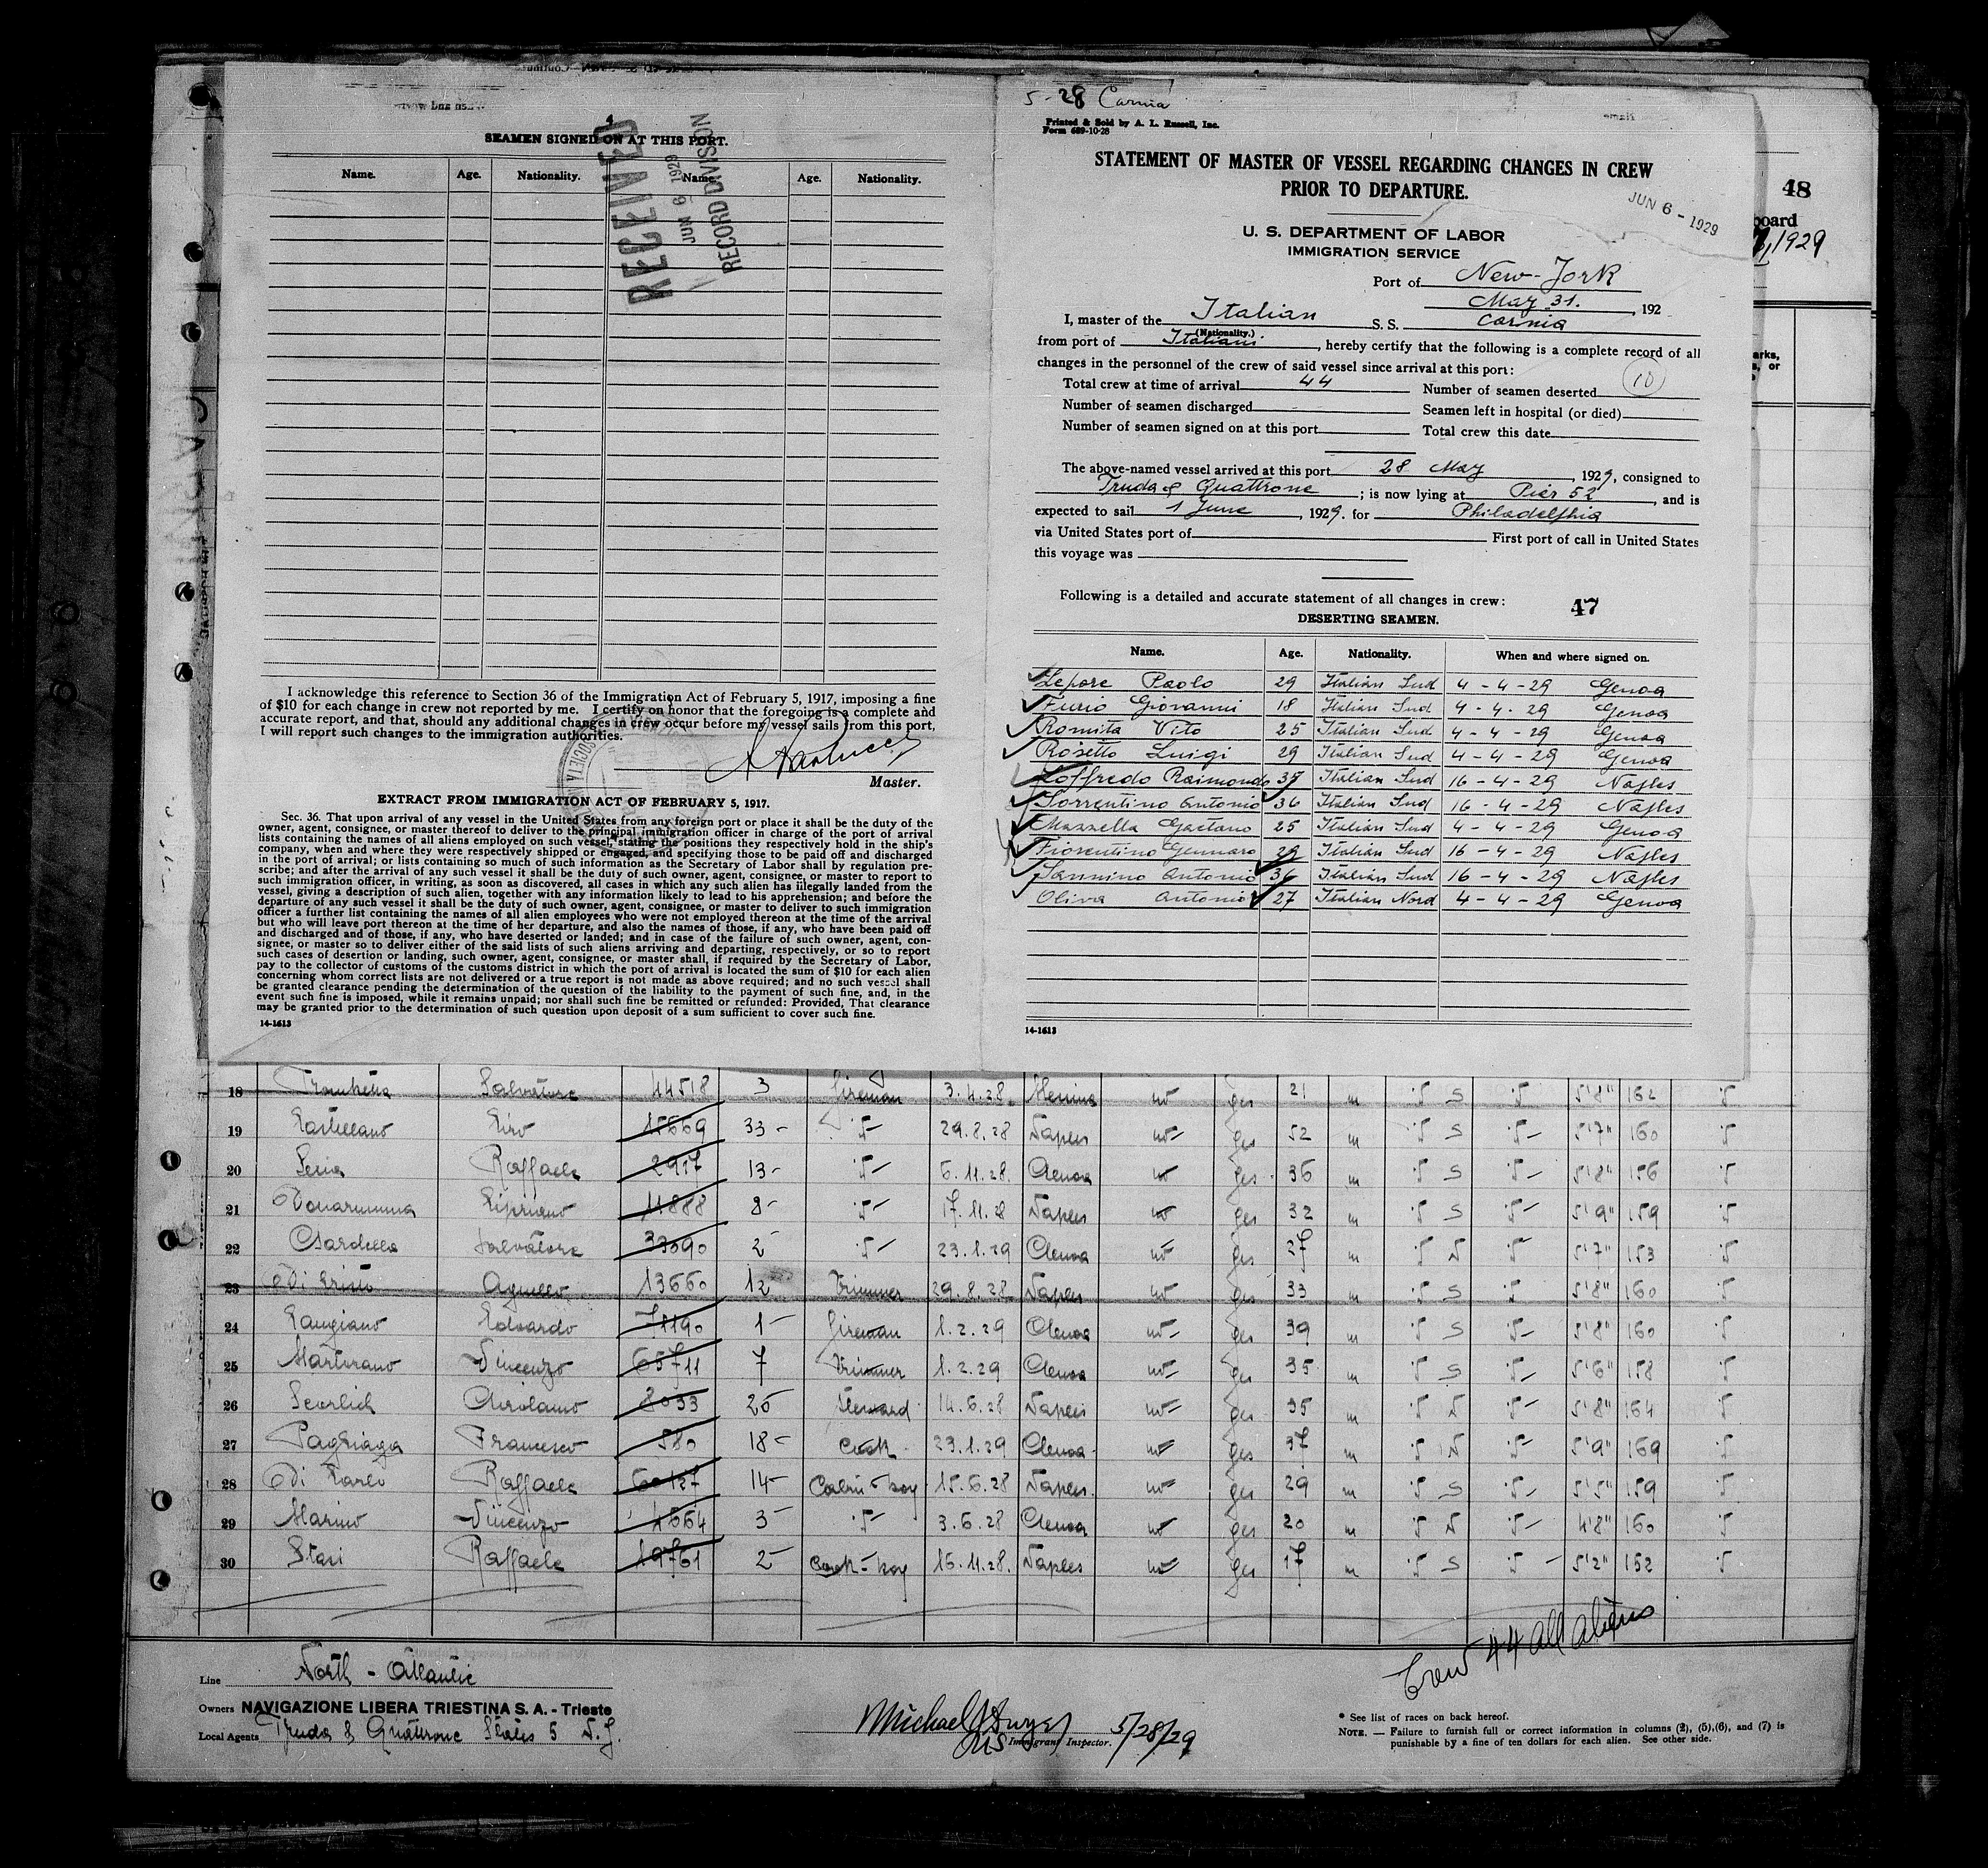 4
SEAMEN SIGNED ON AT THIS PORT.
Name. Age. Nationality. Name. Age. Nationality.
RECEIVED
JUN 6 1929
RECORD DIVISION
I acknowledge this reference to Section 36 of the Immigration Act of February 5, 1917, imposing a fine
of $10 for each change in crew not reported by me. I certify on honor that the foregoing is a complete and
accurate report, and that, should any additional changes in crew occur before my vessel sails from this port,
I will report such changes to the immigration authorities.
Master.
EXTRACT FROM IMMIGRATION ACT OF FEBRUARY 5, 1917.
Sec. 36. That upon arrival of any vessel in the United States from any foreign port or place it shall be the duty of the
owner, agent, consignee, or master thereof to deliver to the principal immigration officer in charge of the port of arrival
lists containing the names of all aliens employed on such vessel, stating the positions they respectively hold in the ship's
company, when and where they were respectively shipped or engaged, and specifying those to be paid off and discharged
in the port of arrival; or lists containing so much of such information as the Secretary of Labor shall by regulation pre-
scribe; and after the arrival of any such vessel it shall be the duty of such owner, agent, consignee, or master to report to
such immigration officer, in writing, as soon as discovered, all cases in which any such alien has illegally landed from the
vessel, giving a description of such alien, together with any information likely to lead to his apprehension; and before the
departure of any such vessel it shall be the duty of such owner, agent, consignee, or master to deliver to such immigration
officer a further list containing the names of all alien employees who were not employed thereon at the time of the arrival
but who will leave port thereon at the time of her departure, and also the names of those, if any, who have been paid off
and discharged and of those, if any, who have deserted or landed; and in case of the failure of such owner, agent, con-
signee, or master so to deliver either of the said lists of such aliens arriving and departing, respectively, or so to report
such cases of desertion or landing, such owner, agent, consignee, or master shall, if required by the Secretary of Labor,
pay to the collector of customs of the customs district in which the port of arrival is located the sum of $10 for each alien
concerning whom correct lists are not delivered or a true report is not made as above required; and no such vessel shall
be granted clearance pending the determination of the question of the liability to the payment of such fine, and, in the
event such fine is imposed, while it remains unpaid; nor shall such fine be remitted or refunded: Provided, That clearance
may be granted prior to the determination of such question upon deposit of a sum sufficient to cover such fine.
14-1613
5-28 Carnia
Printed & Sold by A. L. Russell, Inc.
Form 689-10-28
STATEMENT OF MASTER OF VESSEL REGARDING CHANGES IN CREW
PRIOR TO DEPARTURE.
JUN 6 - 1929
U. S. DEPARTMENT OF LABOR
IMMIGRATION SERVICE
Port of New-Jork
May 31. , 192
I, master of the Italian S. S. Carnia
(Nationality.)
from port of Italiani , hereby certify that the following is a complete record of all
changes in the personnel of the crew of said vessel since arrival at this port:
Total crew at time of arrival 44 Number of seamen deserted 10
Number of seamen discharged Seamen left in hospital (or died)
Number of seamen signed on at this port Total crew this date
The above-named vessel arrived at this port 28 May , 1929, consigned to
Truda & Quattrone ; is now lying at Pier 52 , and is
expected to sail 1 June , 1929. for Philadelphia
via United States port of First port of call in United States
this voyage was
Following is a detailed and accurate statement of all changes in crew: 47
DESERTING SEAMEN.
Name. Age. Nationality. When and where signed on.
Lepore Paolo 29 Italian Sud 4-4-29 Genoa
Giovanni 18 Italian Sud 4-4-29 Genoa
Romita Vito 25 Italian Sud 4-4-29 Genoa
Rosetto Luigi 29 Italian Sud 4-4-29 Genoa
Loffredo Raimondo 37 Italian Sud 16-4-29 Naples
Sorrentino Antonio 36 Italian Sud 16-4-29 Naples
Mazzella Gaetano 25 Italian Sud 4-4-29 Genoa
Fiorentino Gennaro 29 Italian Sud 16-4-29 Naples
Sannino Antonio 36 Italian Sud 16-4-29 Naples
Oliva Antonio 27 Italian Nord 4-4-29 Genoa
14-1613
48
board
1929
arks,
s, or
18 Trombetta Salvatore 44518 3 fireman 3.4.28 Messina no yes 21 m S 5'8" 162
19 Castellano Ciro 15669 33 29.8.28 Naples no yes 52 m S 5'7" 160
20 Raffaele 2917 13 6.11.28 Genoa no yes 36 m S 5'8" 156
21 Donarumma Cipriano 11888 8 17.11.28 Naples no yes 32 m S 5'9" 159
22 Salvatore 33090 2 23.1.29 Genoa no yes 27 m N 5'7" 153
23 Di Cristo Agnello 13660 12 Trimmer 29.8.28 Naples no yes 33 m S 5'8" 160
24 Cangiano Edoardo 71190 1 fireman 1.2.29 Genoa no yes 39 m S 5'8" 160
25 Martorano Vincenzo 65711 7 Trimmer 1.2.29 Genoa no yes 35 m S 5'6" 158
26 Girolamo 8033 26 Steward 14.6.28 Naples no yes 35 m N 5'8" 164
27 Francesco 580 18 Cook 23.1.29 Genoa no yes 37 m N 5'9" 169
28 Di Carlo Raffaele 60127 14 Cabin-boy 15.6.28 Naples no yes 29 m S 5'5" 159
29 Marino Vincenzo 1664 3 3.6.28 Genoa no yes 20 m N 4'8" 160
30 Stasi Raffaele 19761 2 Cook-boy 16.11.28 Naples no yes 17 m S 5'2" 152
Crew 44 all aliens
Line North - Atlantic
Owners NAVIGAZIONE LIBERA TRIESTINA S. A. - Trieste
Local Agents Truda & Quattrone States 5 N.J.
Immigrant Inspector. 5/28/29
* See list of races on back hereof.
NOTE. — Failure to furnish full or correct information in columns (2), (5), (6), and (7) is
punishable by a fine of ten dollars for each alien. See other side.